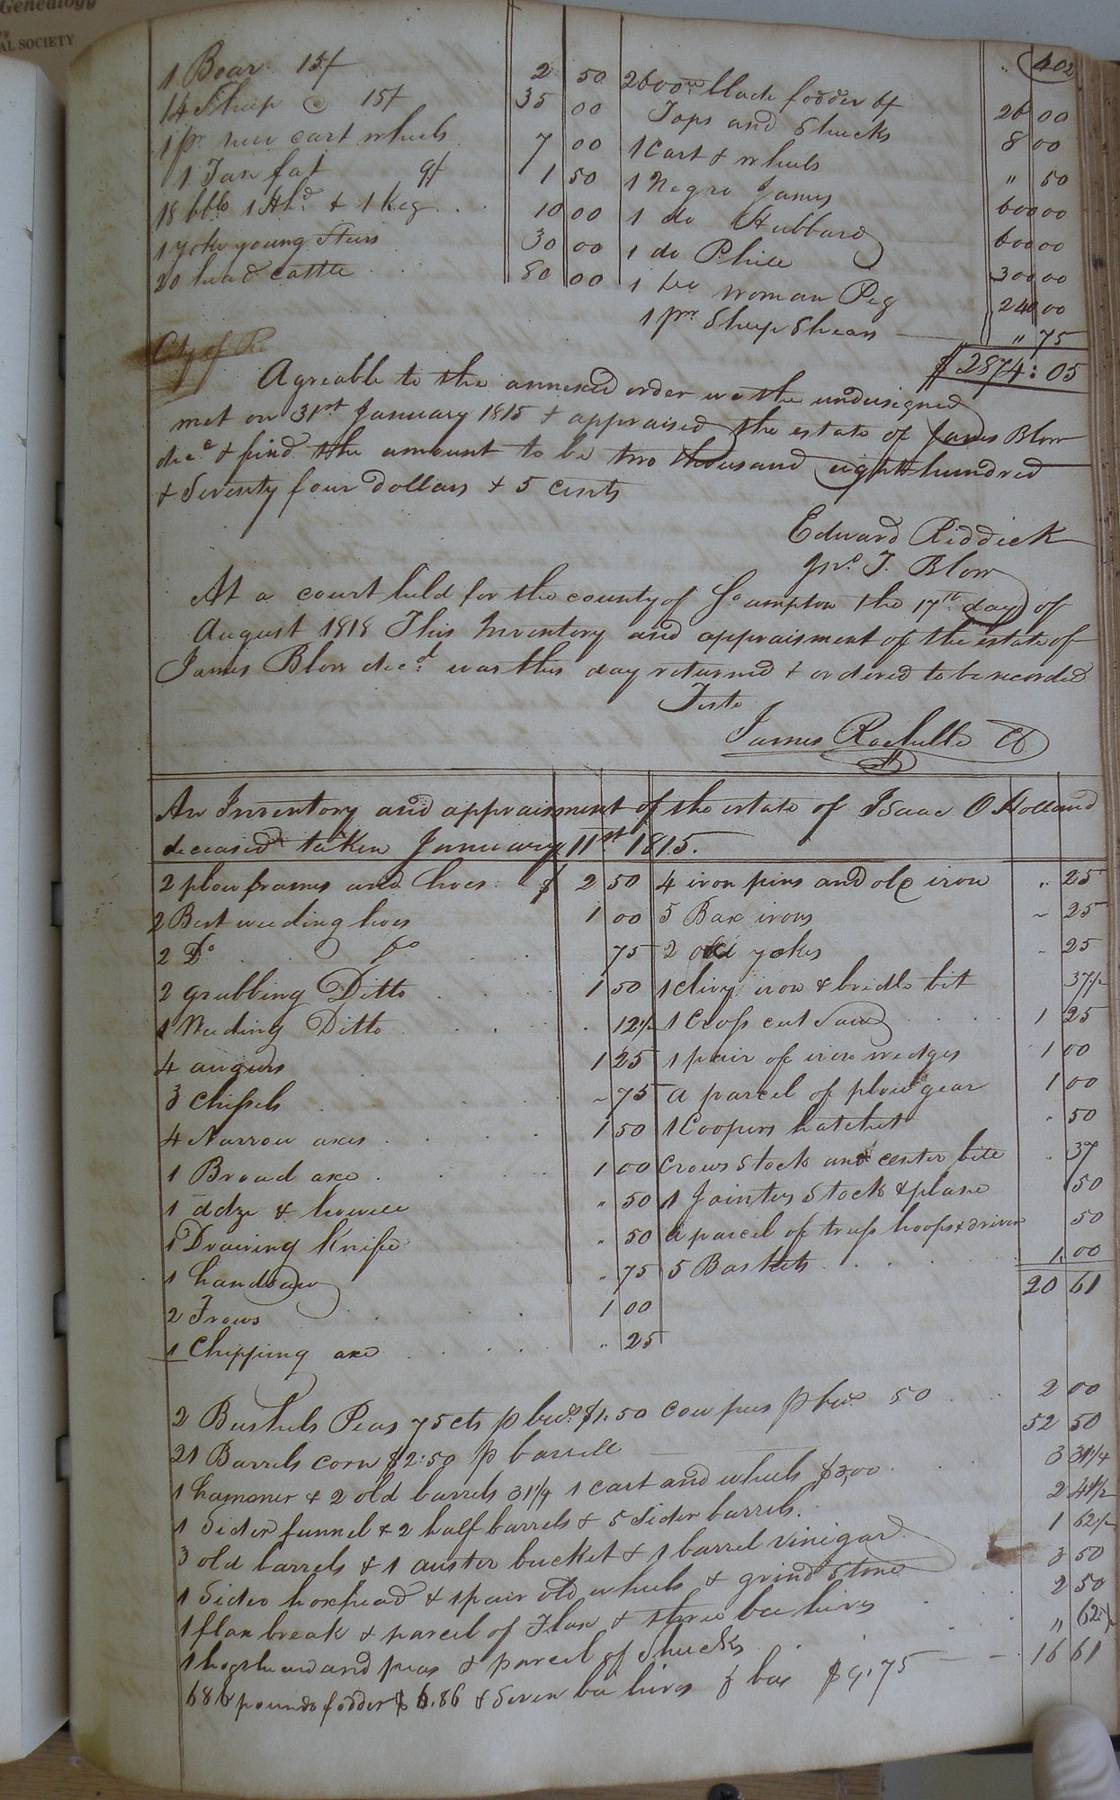 Genealogy
AL SOCIETY
402
1 Boar 15/ 2 50
14 Sheep @ 15/ 35 00
1 pr new cart wheels 7 00
1 Tan fat 9/ 1 50
18 bbls 1 Hhd. & 1 Keg 10 00
1 yoke young Steers 30 00
20 head cattle 80 00
2600 wt black fodder 6/ 26 00
Tops and Shucks 8 00
1 Cart & wheels " 50
1 Negro James 600 00
1 do Hubbard 600 00
1 do Phill 300 00
1 do woman Peg 240 00
1 pr Sheep Shears " 75
$ 2874:05
Agreable to the annexed order we the undersigned
met on 31st January 1815 & appraised the estate of James Blow
decd & find the amount to be two thousand eight hundred
& Seventy four Dollars & 5 cents
Edward Riddick
Jno. T. Blow
At a court held for the county of So ampton the 17th day of
August 1818 This Inventory and appraisment of the estate of
James Blow decd was this day returned & ordered to be recorded
Teste
James Rochelle Cl
An Inventory and appraisment of the estate of Isaac O Holland
deceased taken January 11st 1815.
2 plow frames and hoes $ 2 50
2 Best weeding hoes 1 00
2 Do Do 75
2 grubbing Ditto 1 50
1 Weeding Ditto 12½
4 augurs 1 25
3 Chissels 75
4 Narrow axes 1 50
1 Broad axe 1 00
1 adze & howell " 50
1 Drawing Knife " 50
1 handsaw " 75
2 Frows 1 00
1 Chipping axe " 25
4 iron pins and old iron " 25
5 Bar irons 25
2 old yokes 25
1 clivy iron & bridle bit 37½
1 Cross cut Saw 1 25
1 pair of iron wedges 1 00
a parcel of plow gear 1 00
1 Coopers hatchet 50
Crows Stock and center bitt 37
1 Jointer Stock & plane 50
a parcel of truss hoops & driver 50
5 Baskets 1.00
20 61
2 Bushels Peas 75 cts p bus. $1.50 Cow peas p bus. 50 2 00
21 Barrels corn $2:50 p barrell 52 50
1 hamoner & 2 old barrels 31¼ 1 cart and wheels $3,00 3 31¼
1 Sider funnel & 2 half barrels & 5 Sider barrels. 2 41½
3 old barrels & 1 auster bucket & 1 barrel vinigar 1 62½
1 Sider hoxhead & 1 pair old wheels & grind Stone 3 50
1 flax break & parcel of Flax & three bee hives 2 50
1 hogshead and peas & parcel of Shucks " 62½
686 pounds fodder $ 6.86 & Seven bee hives & bees $9.75 16 61